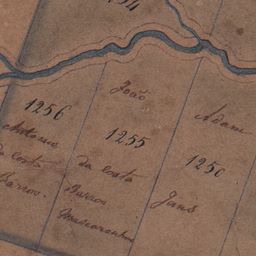 1256
Antonio
da costa
Barros.
João
1255
da costa
Barros
Mascarenhas
Adam
1250
Jans